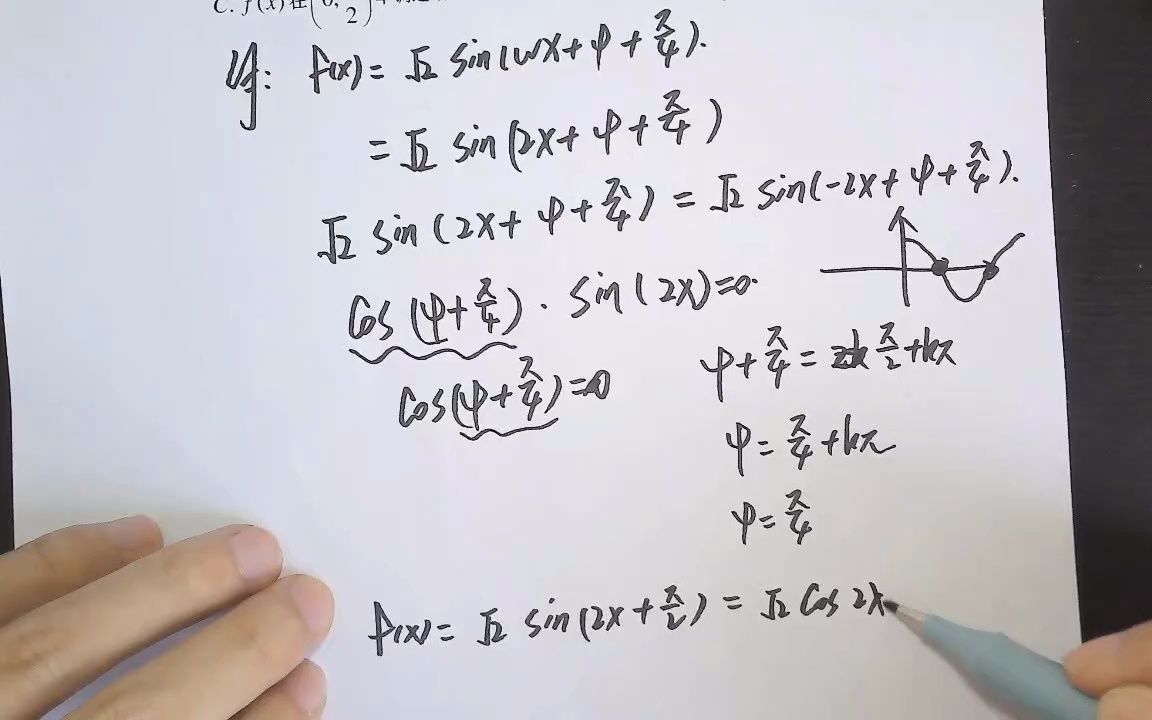 C. f(x) 在(0, π/2)
解: f(x) = √2 sin(wx + φ + π/4).
= √2 sin(2x + φ + π/4)
√2 sin(2x + φ + π/4) = √2 sin(-2x + φ + π/4).
Cos(φ + π/4) · sin(2x) = 0.
Cos(φ + π/4) = 0
φ + π/4 = π/2 + kπ
φ = π/4 + kπ
φ = π/4
f(x) = √2 sin(2x + π/2) = √2 Cos 2x